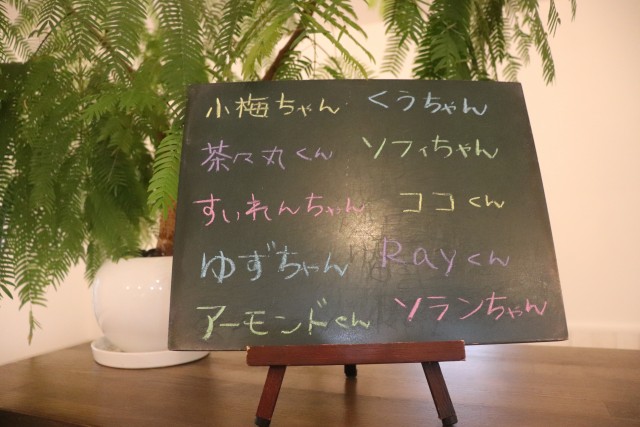 小梅ちゃん くうちゃん
茶々丸くん ソフィちゃん
すいれんちゃん ココくん
ゆずちゃん Rayくん
アーモンドくん ソランちゃん